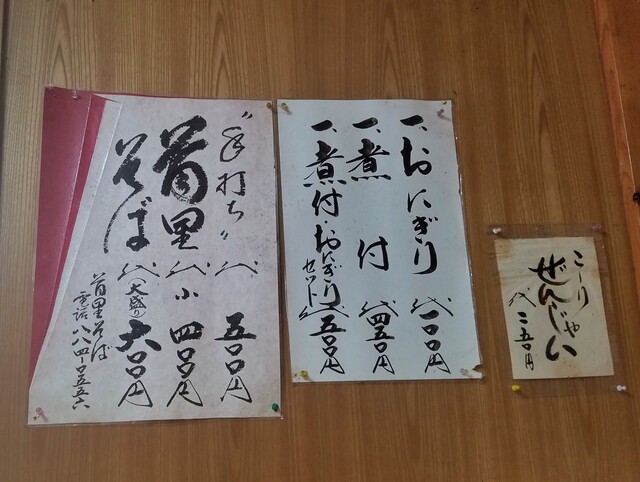 〝手打ち〟代 五〇〇円
首里 代 小 四〇〇円
そば 代 (大盛り) 六〇〇円
首里そば
電話 八八四-〇五五六
一、おにぎり 代 一〇〇円
一、煮付 代 四五〇円
一、煮付・おにぎりセット 代 五〇〇円
こーりゃい
ぜんじゃい
代 二五〇円